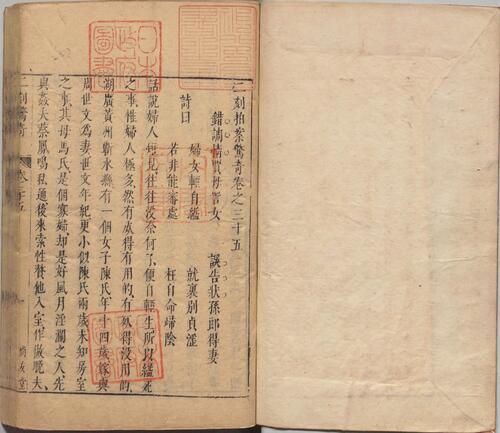 二刻拍案驚奇卷之三十五
錯調情賈母詈女　誤告狀孫郎得妻
詩曰
婦女輕自縊　就裏別貞淫
若非能審處　枉自命歸陰
話說婦人短見往往沒奈何了便自輕生所以縊死
之事惟婦人極多然有死得有用的有死得沒用的
湖廣黃州蘄水縣有一個女子陳氏年十四歲嫁與
周世文為妻世文年紀更小似陳氏兩歲未知房室
之事其母馬氏是個寡婦却是好風月淫濫之人先
與姦夫蔡鳳鳴私通後來索性贅他入室作做晚夫
二刻驚奇　卷三十五　尚友堂
日本政府圖書